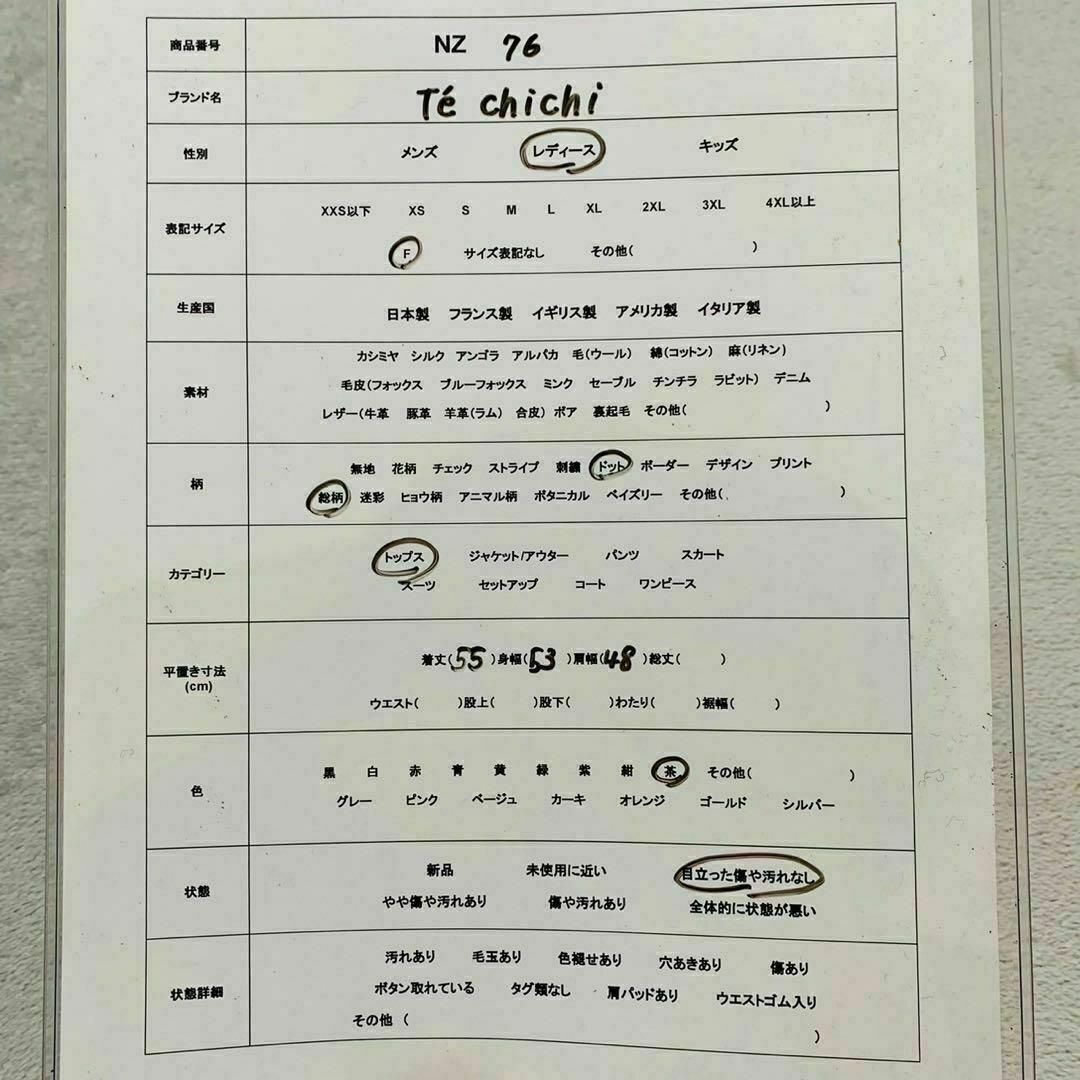 商品番号 NZ 76
ブランド名 Té chichi
性別 メンズ レディース キッズ
表記サイズ
XXS以下 XS S M L XL 2XL 3XL 4XL以上
F サイズ表記なし その他( )
生産国 日本製 フランス製 イギリス製 アメリカ製 イタリア製
素材
カシミヤ シルク アンゴラ アルパカ 毛(ウール) 綿(コットン) 麻(リネン)
毛皮(フォックス ブルーフォックス ミンク セーブル チンチラ ラビット) デニム
レザー(牛革 豚革 羊革(ラム) 合皮) ボア 裏起毛 その他( )
柄
無地 花柄 チェック ストライプ 刺繍 ドット ボーダー デザイン プリント
総柄 迷彩 ヒョウ柄 アニマル柄 ボタニカル ペイズリー その他( )
カテゴリー
トップス ジャケット/アウター パンツ スカート
スーツ セットアップ コート ワンピース
平置き寸法
(cm)
着丈(55)身幅(53)肩幅(48)総丈( )
ウエスト( )股上( )股下( )わたり( )裾幅( )
色
黒 白 赤 青 黄 緑 紫 紺 茶 その他( )
グレー ピンク ベージュ カーキ オレンジ ゴールド シルバー
状態
新品 未使用に近い 目立った傷や汚れなし
やや傷や汚れあり 傷や汚れあり 全体的に状態が悪い
状態詳細
汚れあり 毛玉あり 色褪せあり 穴あきあり 傷あり
ボタン取れている タグ類なし 肩パッドあり ウエストゴム入り
その他 ( )